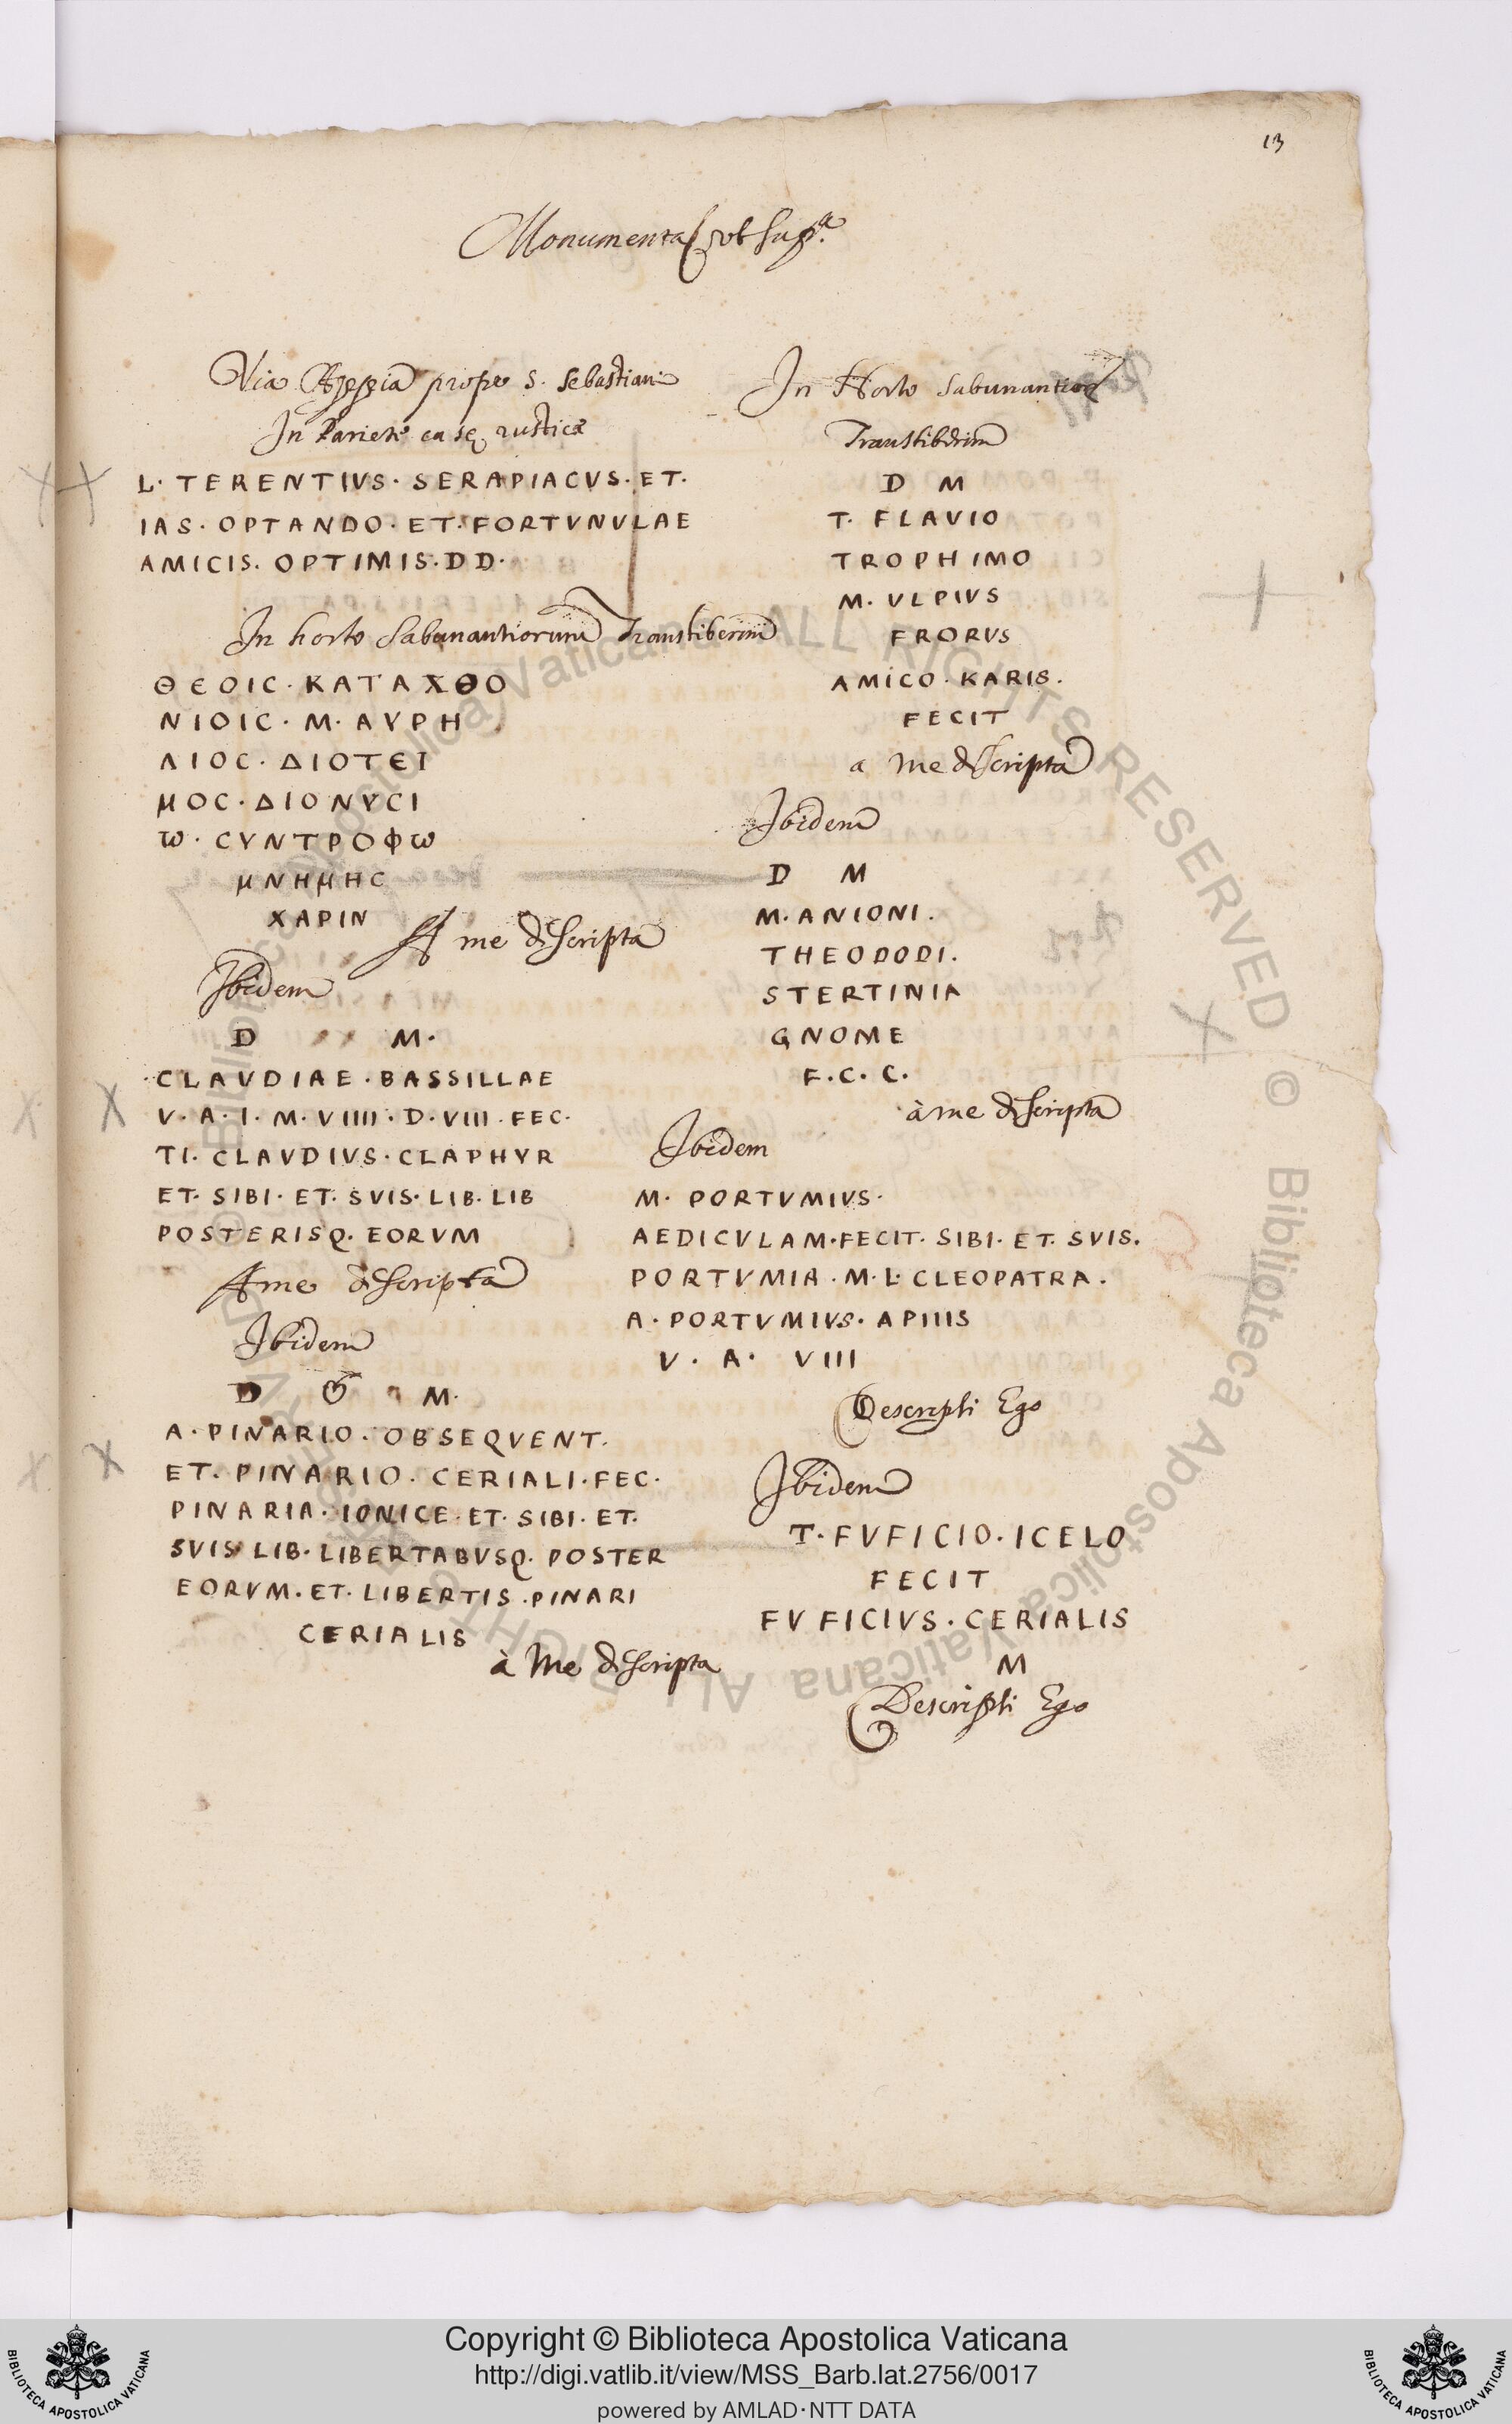 13
Monumenta vbi sup.ª
Via Appia prope S. Sebastiani
In Pariete rustica
L· TERENTIVS · SERAPIACVS · ET ·
IAS · OPTANDO · ET · FORTVNVLAE
AMICIS · OPTIMIS · D D ·
In horto Sabunantiorum Transtiberim
ΘΕΟΙC · ΚΑΤΑΧΘΟ
ΝΙΟΙC · Μ · ΑΥΡΗ
ΛΙΟC · ΔΙΟΤΕΙ
μΟC · ΔΙΟΝΥCΙ
ω · CΥΝΤΡΟΦω
μΝΗμΗC
ΧΑΡΙΝ
A me descripta
Ibidem
D M ·
CLAVDIAE · BASSILLAE
V · A · I · M · VIIII · D · VIII · FEC ·
TI · CLAVDIVS · CLAPHYR
ET · SIBI · ET · SVIS · LIB · LIB
POSTERISQ · EORVM
A me descripta
Ibidem
D M ·
A · PINARIO · OBSEQVENT ·
ET · PINARIO · CERIALI · FEC ·
PINARIA · IONICE · ET · SIBI · ET ·
SVIS LIB · LIBERTABVSQ · POSTER
EORVM · ET · LIBERTIS · PINARI
CERIALIS
à me descripta
In Horto Sabunantior
Transtiberim
D M
T · FLAVIO
TROPHIMO
M · VLPIVS
FRORVS
AMICO · KARIS ·
FECIT
a me descripta
Ibidem
D M
M · ANIONI ·
THEODODI ·
STERTINIA
GNOME
F · C · C ·
à me descripta
Ibidem
M · PORTVMIVS ·
AEDICVLAM · FECIT · SIBI · ET · SVIS ·
PORTVMIA · M · L · CLEOPATRA ·
A · PORTVMIVS · APIIIS
V · A · VIII
Descripsi Ego
Ibidem
T · FVFICIO · ICELO
FECIT
FVFICIVS · CERIALIS
M
Descripsi Ego
© Biblioteca Apostolica Vaticana ALL RIGHTS RESERVED
© Biblioteca Apostolica Vaticana ALL RIGHTS RESERVED
Copyright © Biblioteca Apostolica Vaticana
http://digi.vatlib.it/view/MSS_Barb.lat.2756/0017
powered by AMLAD·NTT DATA
BIBLIOTECA APOSTOLICA VATICANA
BIBLIOTECA APOSTOLICA VATICANA